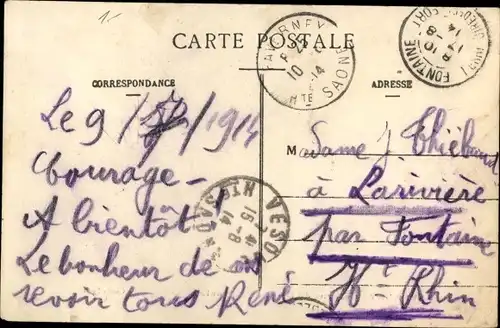 CARTE POSTALE
CORRESPONDANCE
ADRESSE
Le 9 / /1914
Courage -
A bientôt!
Le bonheur de
revoir tous René
Madame J Thiébaud
à Larivière
par Fontaine
Ht-Rhin
FAVERNEY
10 14
HTE SAONE
FONTAINE
VESOUL
15-8
14
HTE SAONE